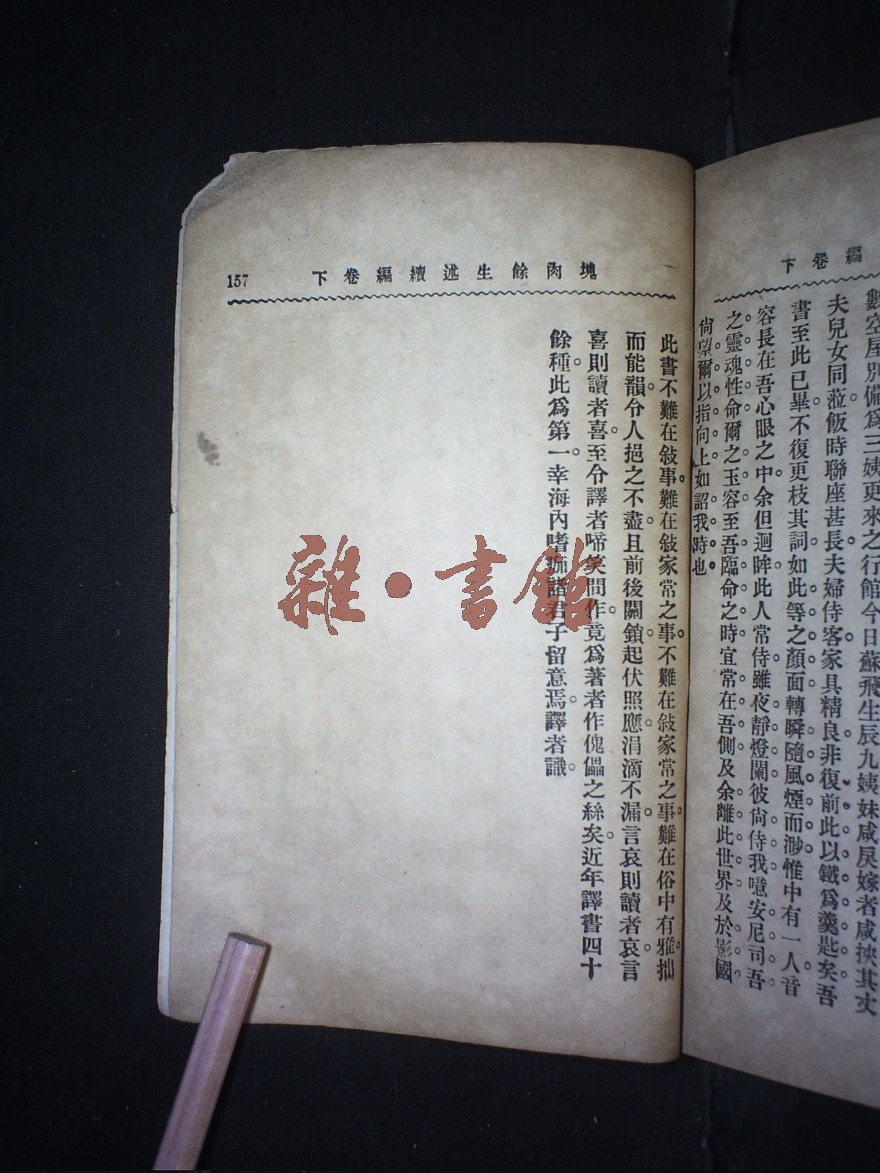 編卷下
數空屋別備爲三姨更來之行館今日蘇飛生辰九姨妹咸戾嫁者咸挾其丈
夫兒女同蒞飯時聯座甚長。夫婦侍客。家具精良。非復前此以鐵爲羹匙矣。吾
書至此已畢不復更枝其詞如此等之顏面轉瞬隨風煙而渺惟中有一人音
容長在吾心眼之中。余但迴眸此人常侍雖夜靜燈闌彼尙侍我噫安尼司吾
之靈魂性命爾之玉容至吾臨命之時宜常在吾側及余離此世界及於影國
尙望爾以指向上如詔我時也。
塊肉餘生述續編卷下
157
此書不難在敍事。難在敍家常之事。不難在敍家常之事。難在俗中有雅。拙
而能韻。令人挹之不盡。且前後關鎖。起伏照應。涓滴不漏。言哀則讀者哀。言
喜則讀者喜。至令譯者啼笑間作。竟爲著者作傀儡之絲矣。近年譯書四十
餘種。此爲第一。幸海內嗜痂諸君子留意焉。譯者識。
雜·書館